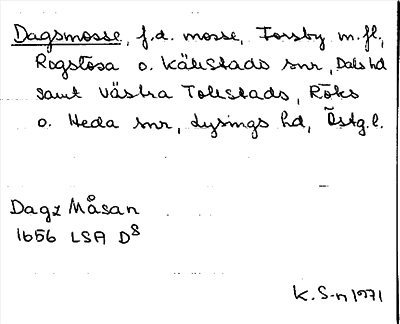 Dagsmosse, f.d. mosse, Forsby m.fl.,
Rogslösa o. Källstads snr, Dals hd
samt Västra Tollstads, Röks
o. Heda snr, Lysings hd, Östg.l.
Dagz Måsan
1656 LSA D8
K.S-n 1971